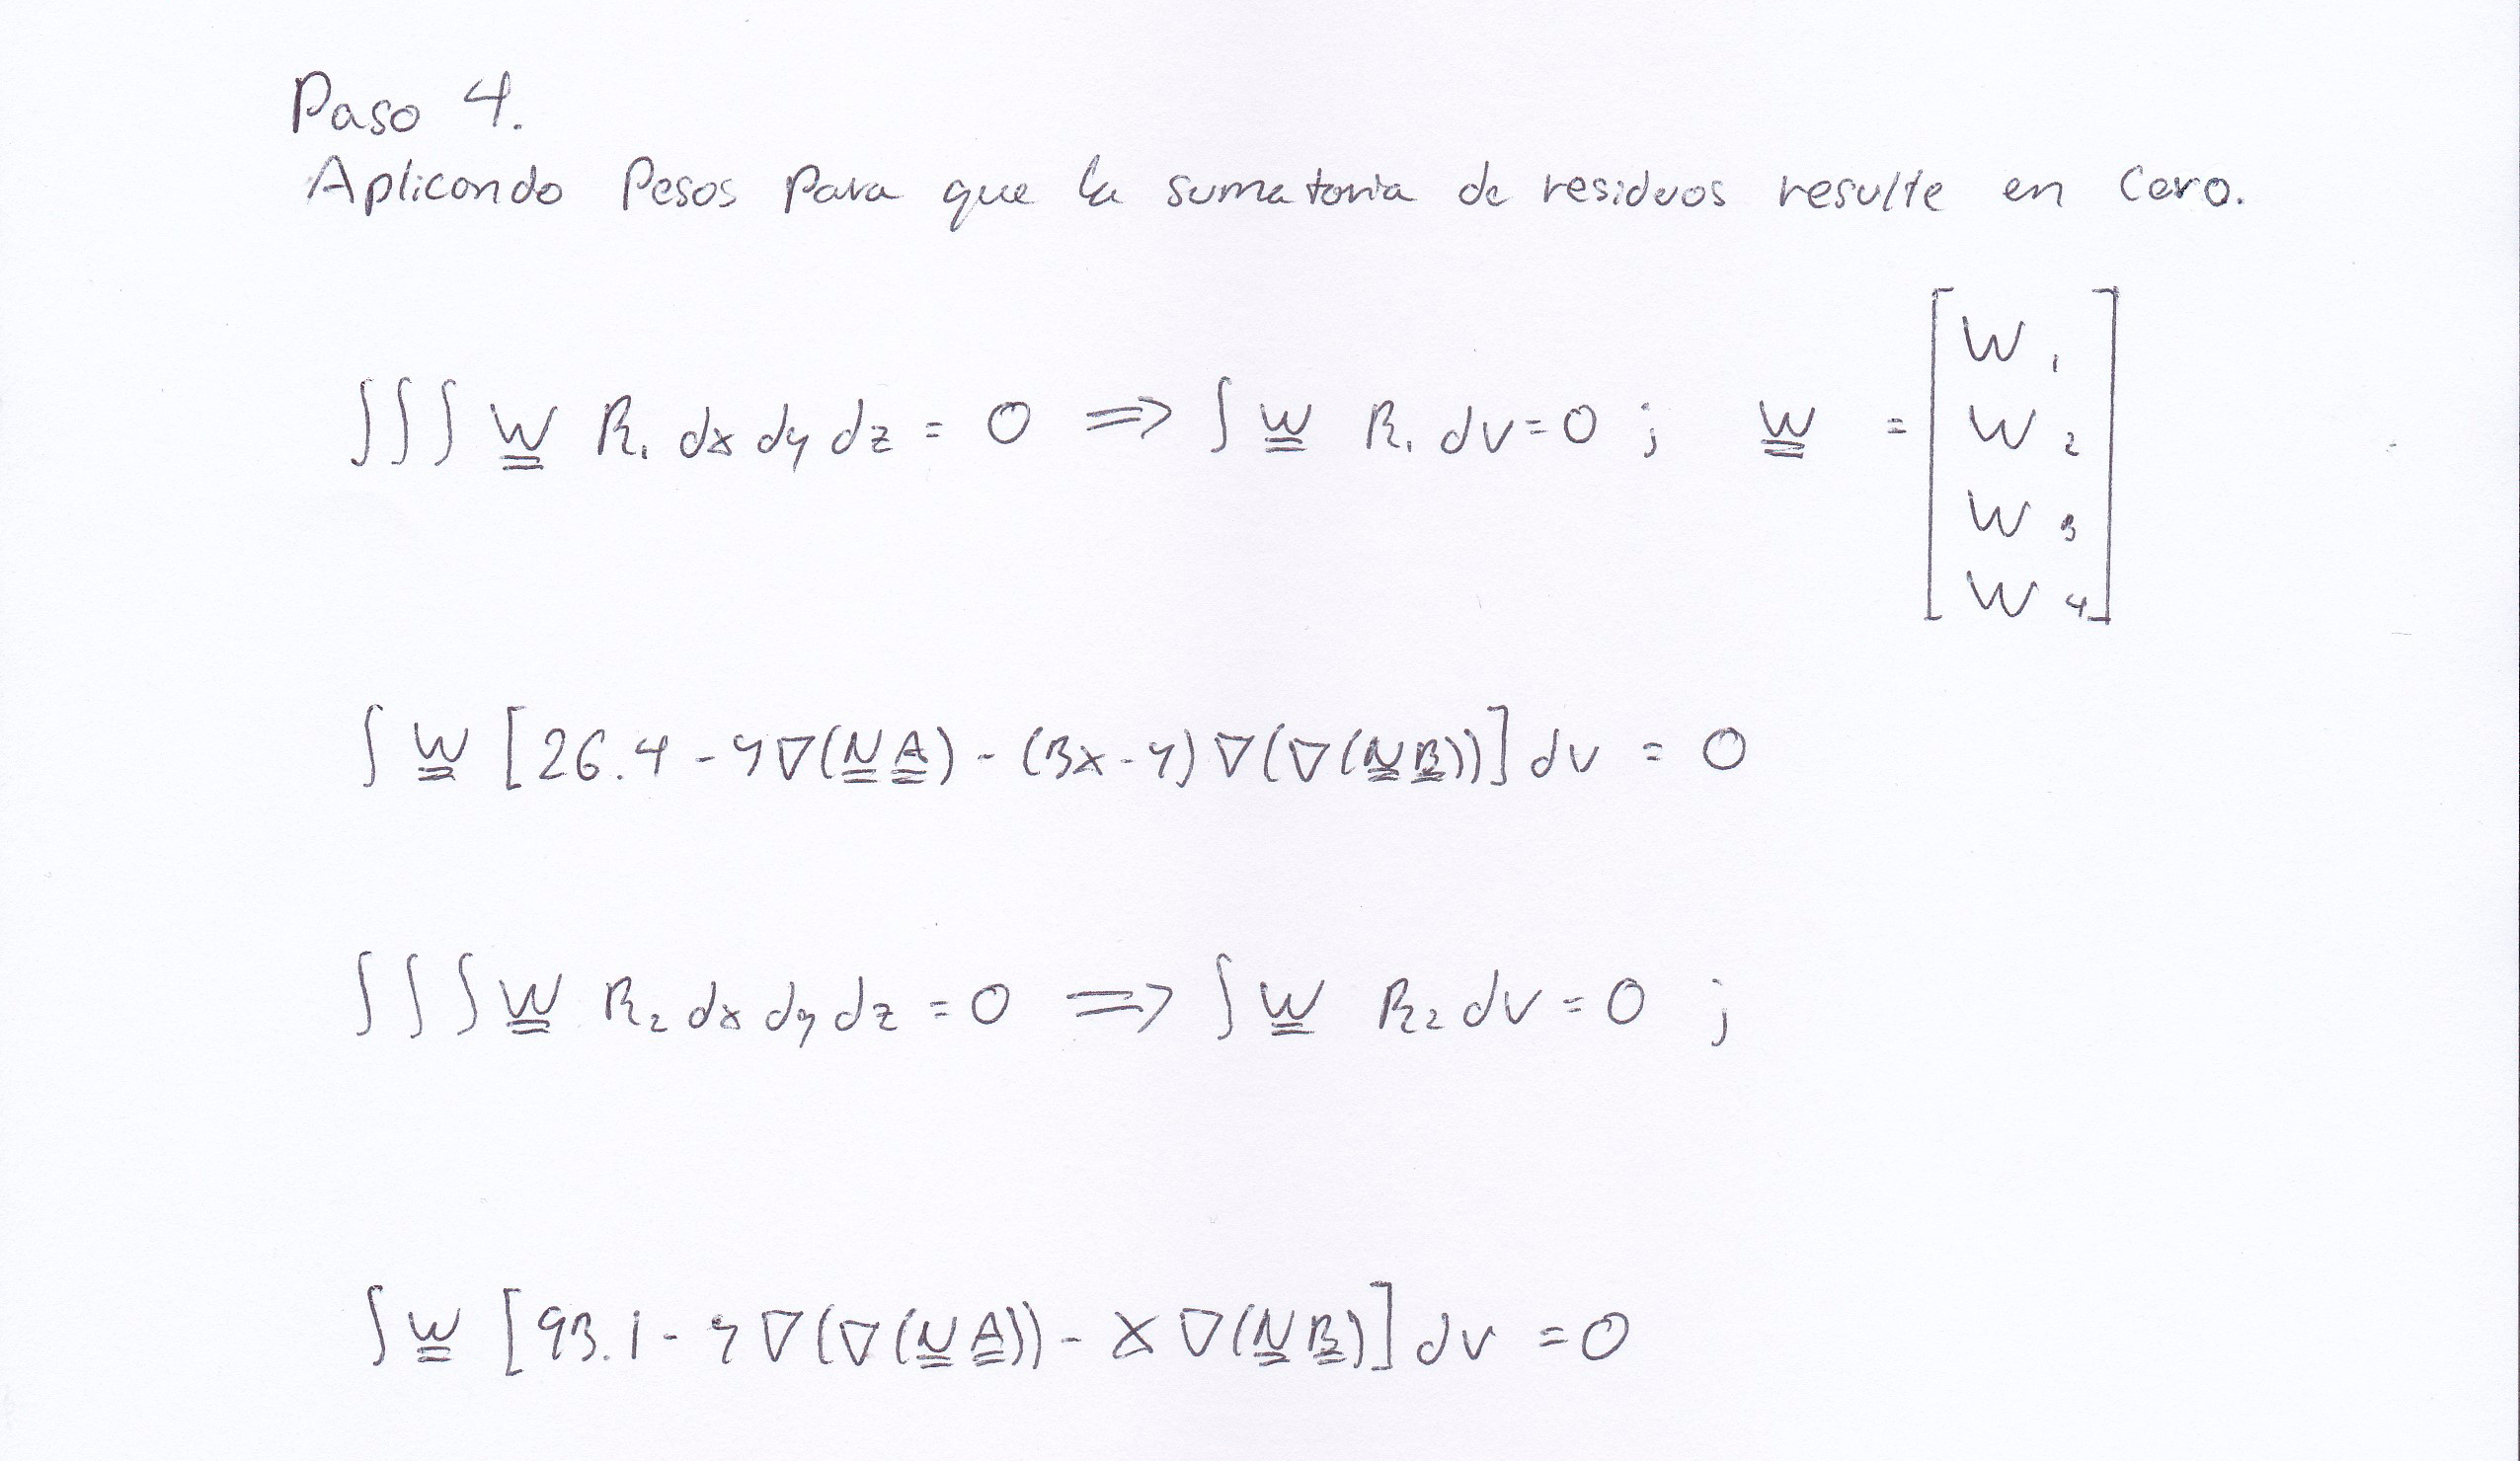 Paso 4.
Aplicando Pesos para que la sumatoria de residuos resulte en cero.
∫∫∫ W̳ R₁ dx dy dz = 0 ⇒ ∫ W̳ R₁ dv = 0 ; W̳ = [W₁ W₂ W₃ W₄]
∫ W̳ [26.4 - y∇(N̳ A̳) - (3x-y)∇(∇(N̳ B̳))] dv = 0
∫∫∫ W̳ R₂ dx dy dz = 0 ⇒ ∫ W̳ R₂ dv = 0 ;
∫ W̳ [93.1 - y∇(∇(N̳ A̳)) - x∇(N̳ B̳)] dv = 0